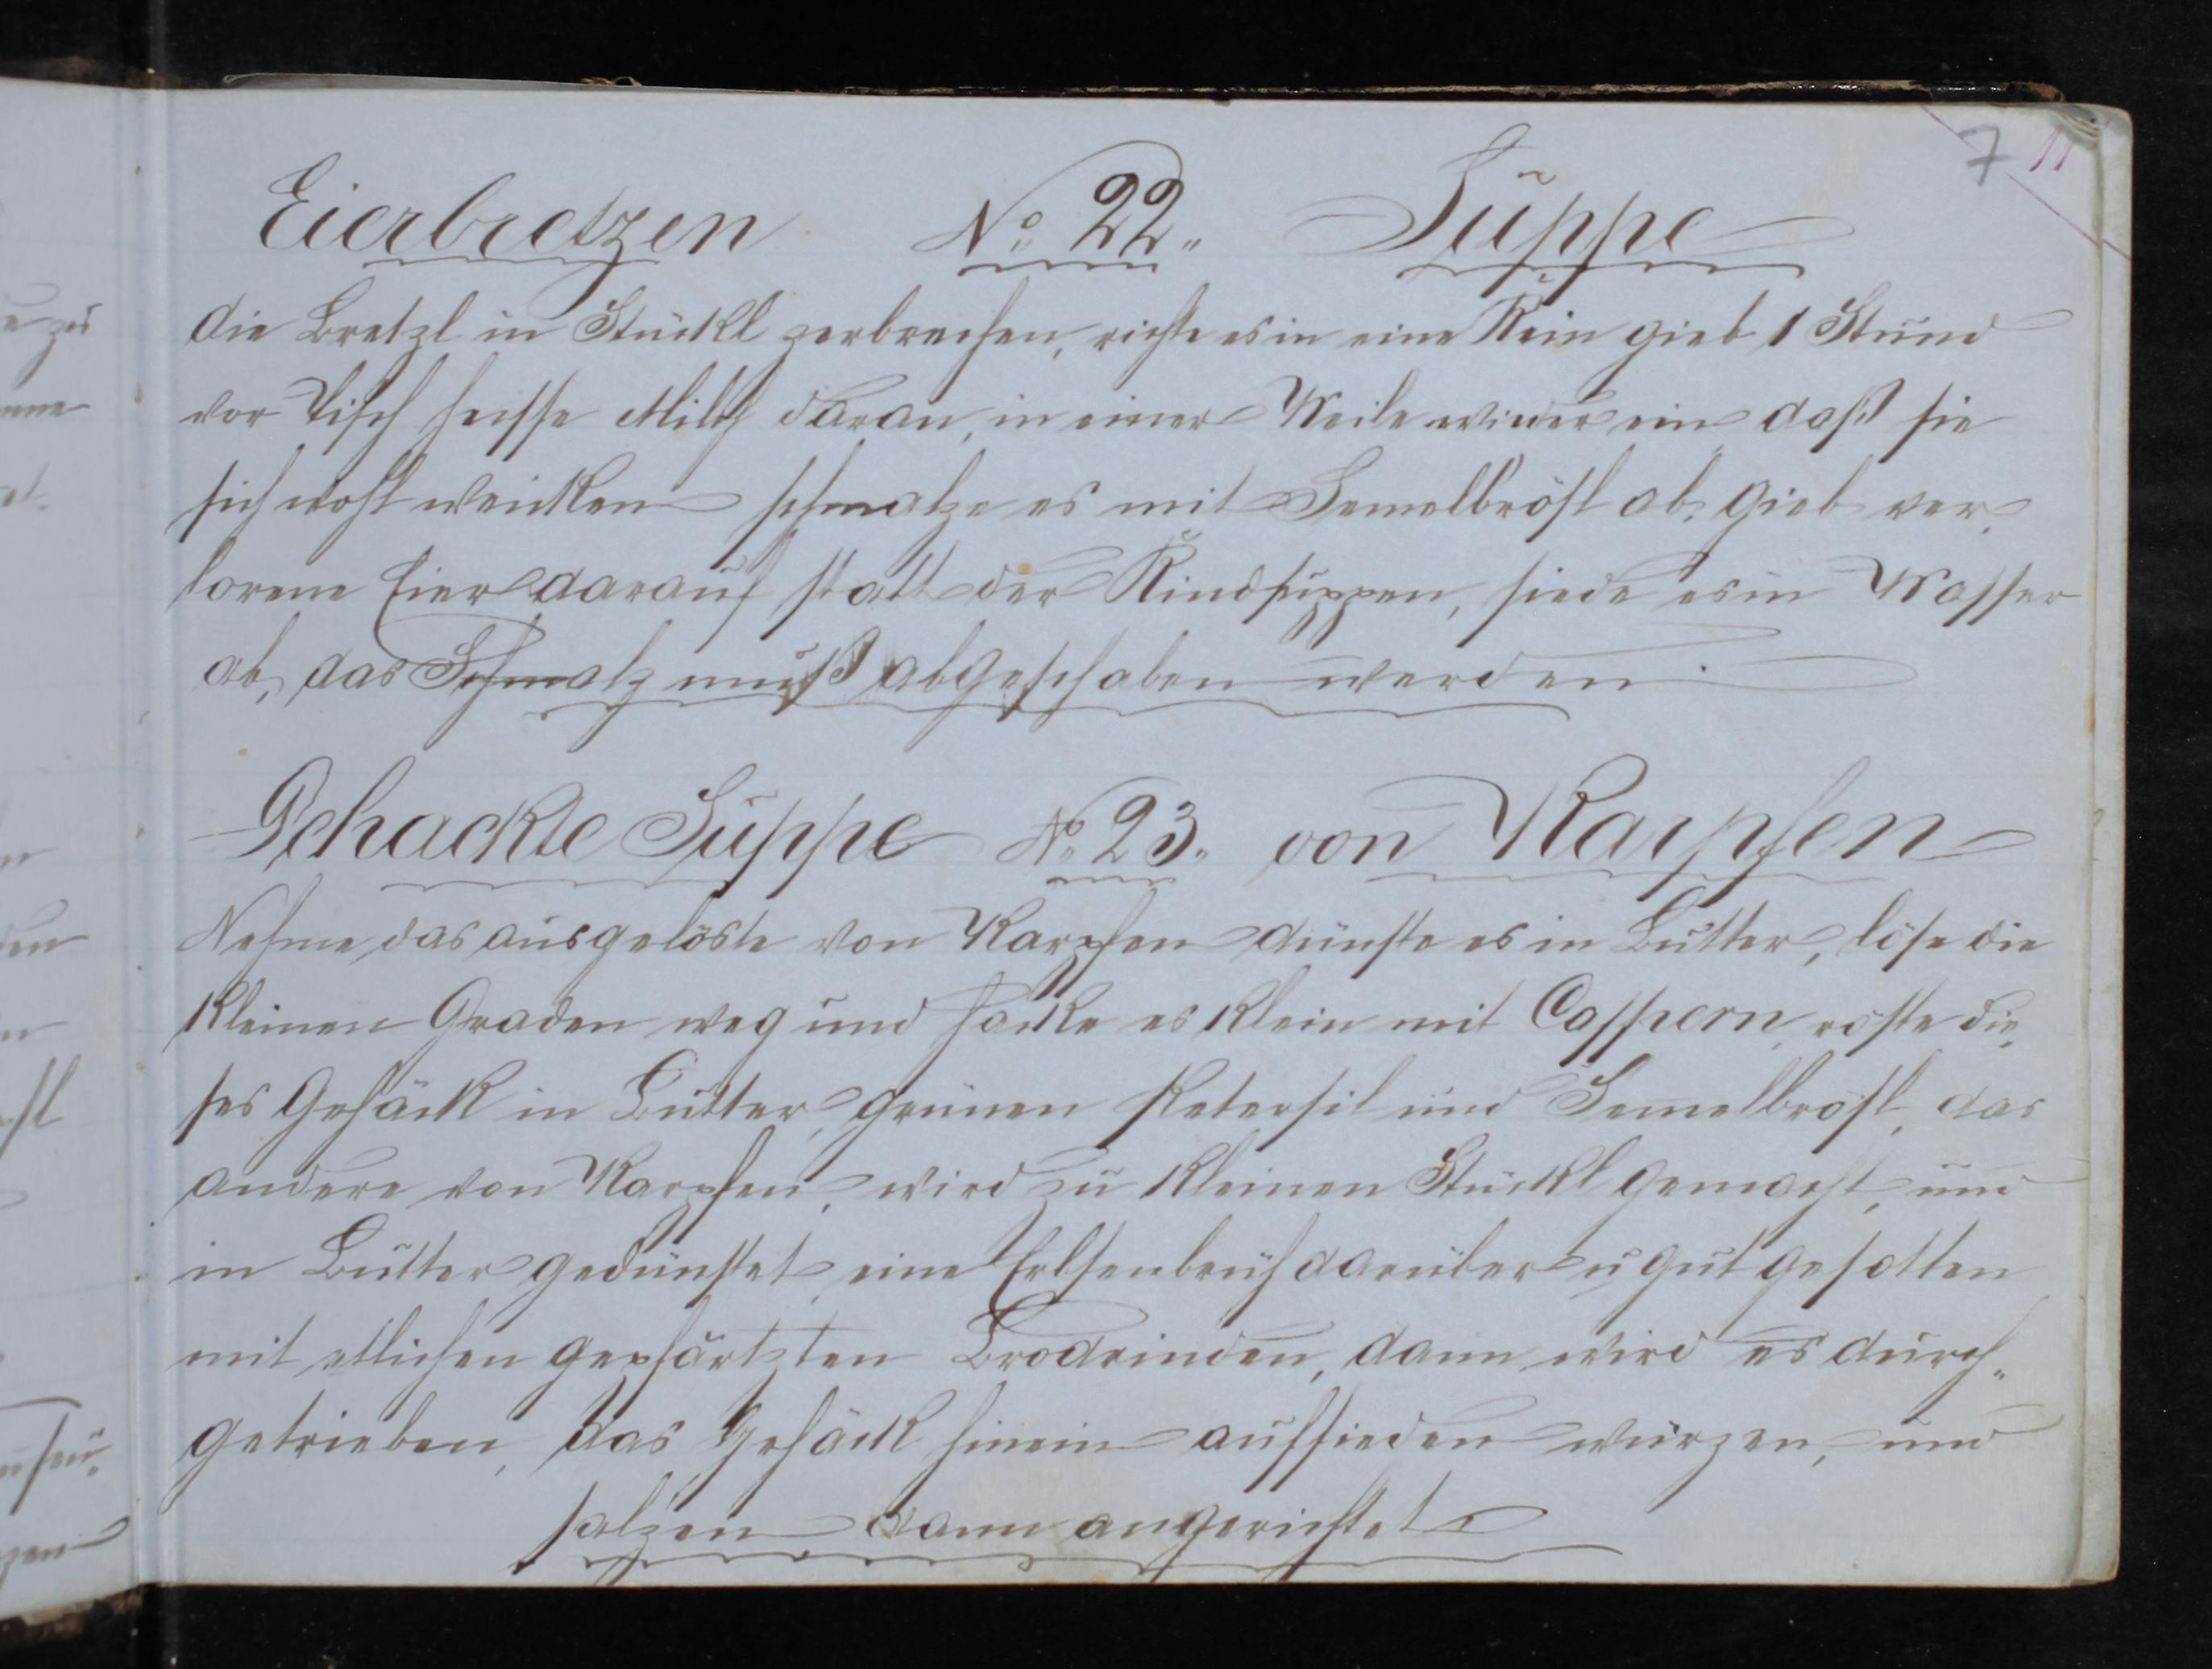 7 11
Eierbretzen No 22. Suppe
die Bretzl in Stückl zerbrechen, richte es in eine Rein gieb 1 Stund
vor Tisch heisse Milch daran, in einer Weile wieder ein daß sie
sich wohl weicken schmalze es mit Semelbrösl ab, gieb ver,
lorene Eier darauf statt der Rindsuppen, siede es in Wasser
ab, das Schmalz muß abgeschaben werden.
Gehackte Suppe No 23. von Karpfen
Nehme das ausgelöste von Karpfen dünste es in Butter, löse die
kleinen Graden weg und hacke es klein mit Cappern, röste die,
ses Gehäck in Butter, grünen Petersil und Semelbrösl, das
andere von Karpfen, wird zu kleinen Stückl gemacht, und
in Butter gedünstet eine Erbsenbrüh darüber u gut gesotten
mit etlichen gepfärtzten Brodrinden, dann wird es durch„
getrieben, das Gehäck hinein aufsieden würzen, und
salzen dann angerichtet